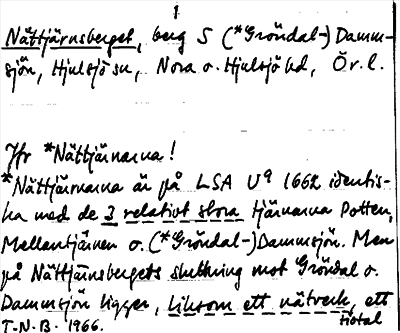 1
Nättjärnsberget, berg S (*Gröndal-) Damm-
sjön, Hjulsjö sn, Nora o. Hjulsjö hd, Ör. l.
Jfr *Nättjärnarna!
*Nättjärnarna är på LSA U9 1662 identis-
ka med de 3 relativt stora tjärnarna Potten,
Mellantjärnen o. (*Gröndal-) Dammsjön. Men
på Nättjärnsbergets sluttning mot Gröndal o.
Dammsjön ligger, liksom ett nätverk, ett
T.N.B. 1966.
tiotal